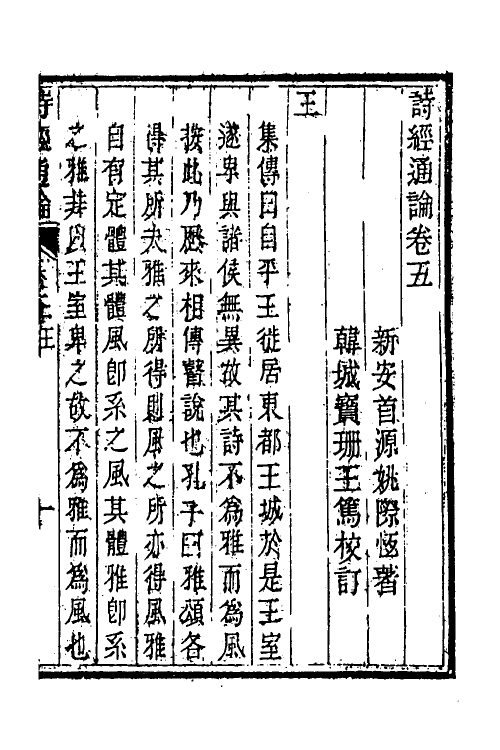 詩經通論卷五
新安首源姚際恆著
韓城寶珊王篤校訂
王
集傳曰自平王徙居東都王城於是王室
遂卑與諸侯無異故其詩不爲雅而爲風
按此乃歷來相傳瞽說也孔子曰雅頌各
得其所夫雅之所得則風之所亦得風雅
自有定體其體風卽系之風其體雅卽系
之雅非以王室卑之故不爲雅而爲風也
詩經通論
卷五王
一